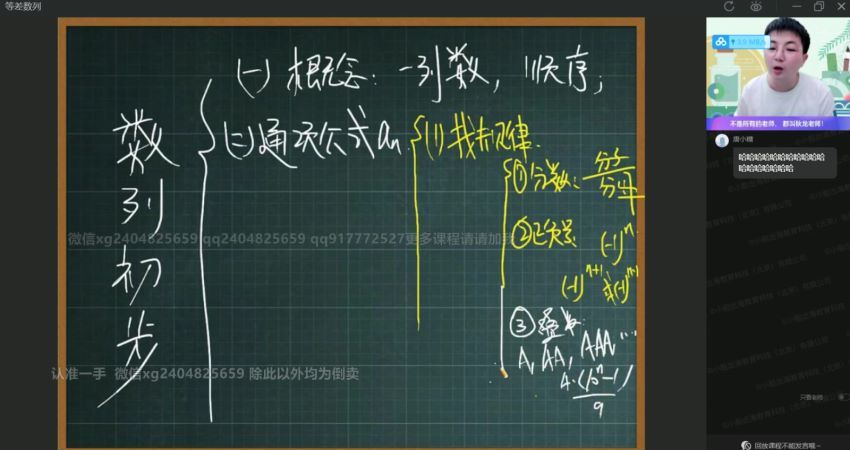 等差数列
3.9 MB/s
(一) 概念: 一列数, 顺序;
数列初步
(二) 通项公式 an
(1) 找规律.
① 分数: 分子/分母
② 正负号: (-1)^n
(-1)^{n+1} 或 (-1)^{n-1}
③ 叠数:
A, AA, AAA, ...
A·(10^n-1)/9
微信xg2404825659 qq2404825659 qq917772527更多课程请请加我
认准一手 微信xg2404825659 除此以外均为倒卖
不是所有的老师， 都叫狄龙老师!
唐小糖
哈哈哈哈哈哈哈哈哈哈哈
哈哈哈哈哈哈哈
只看老师
回放课程不能发言哦~